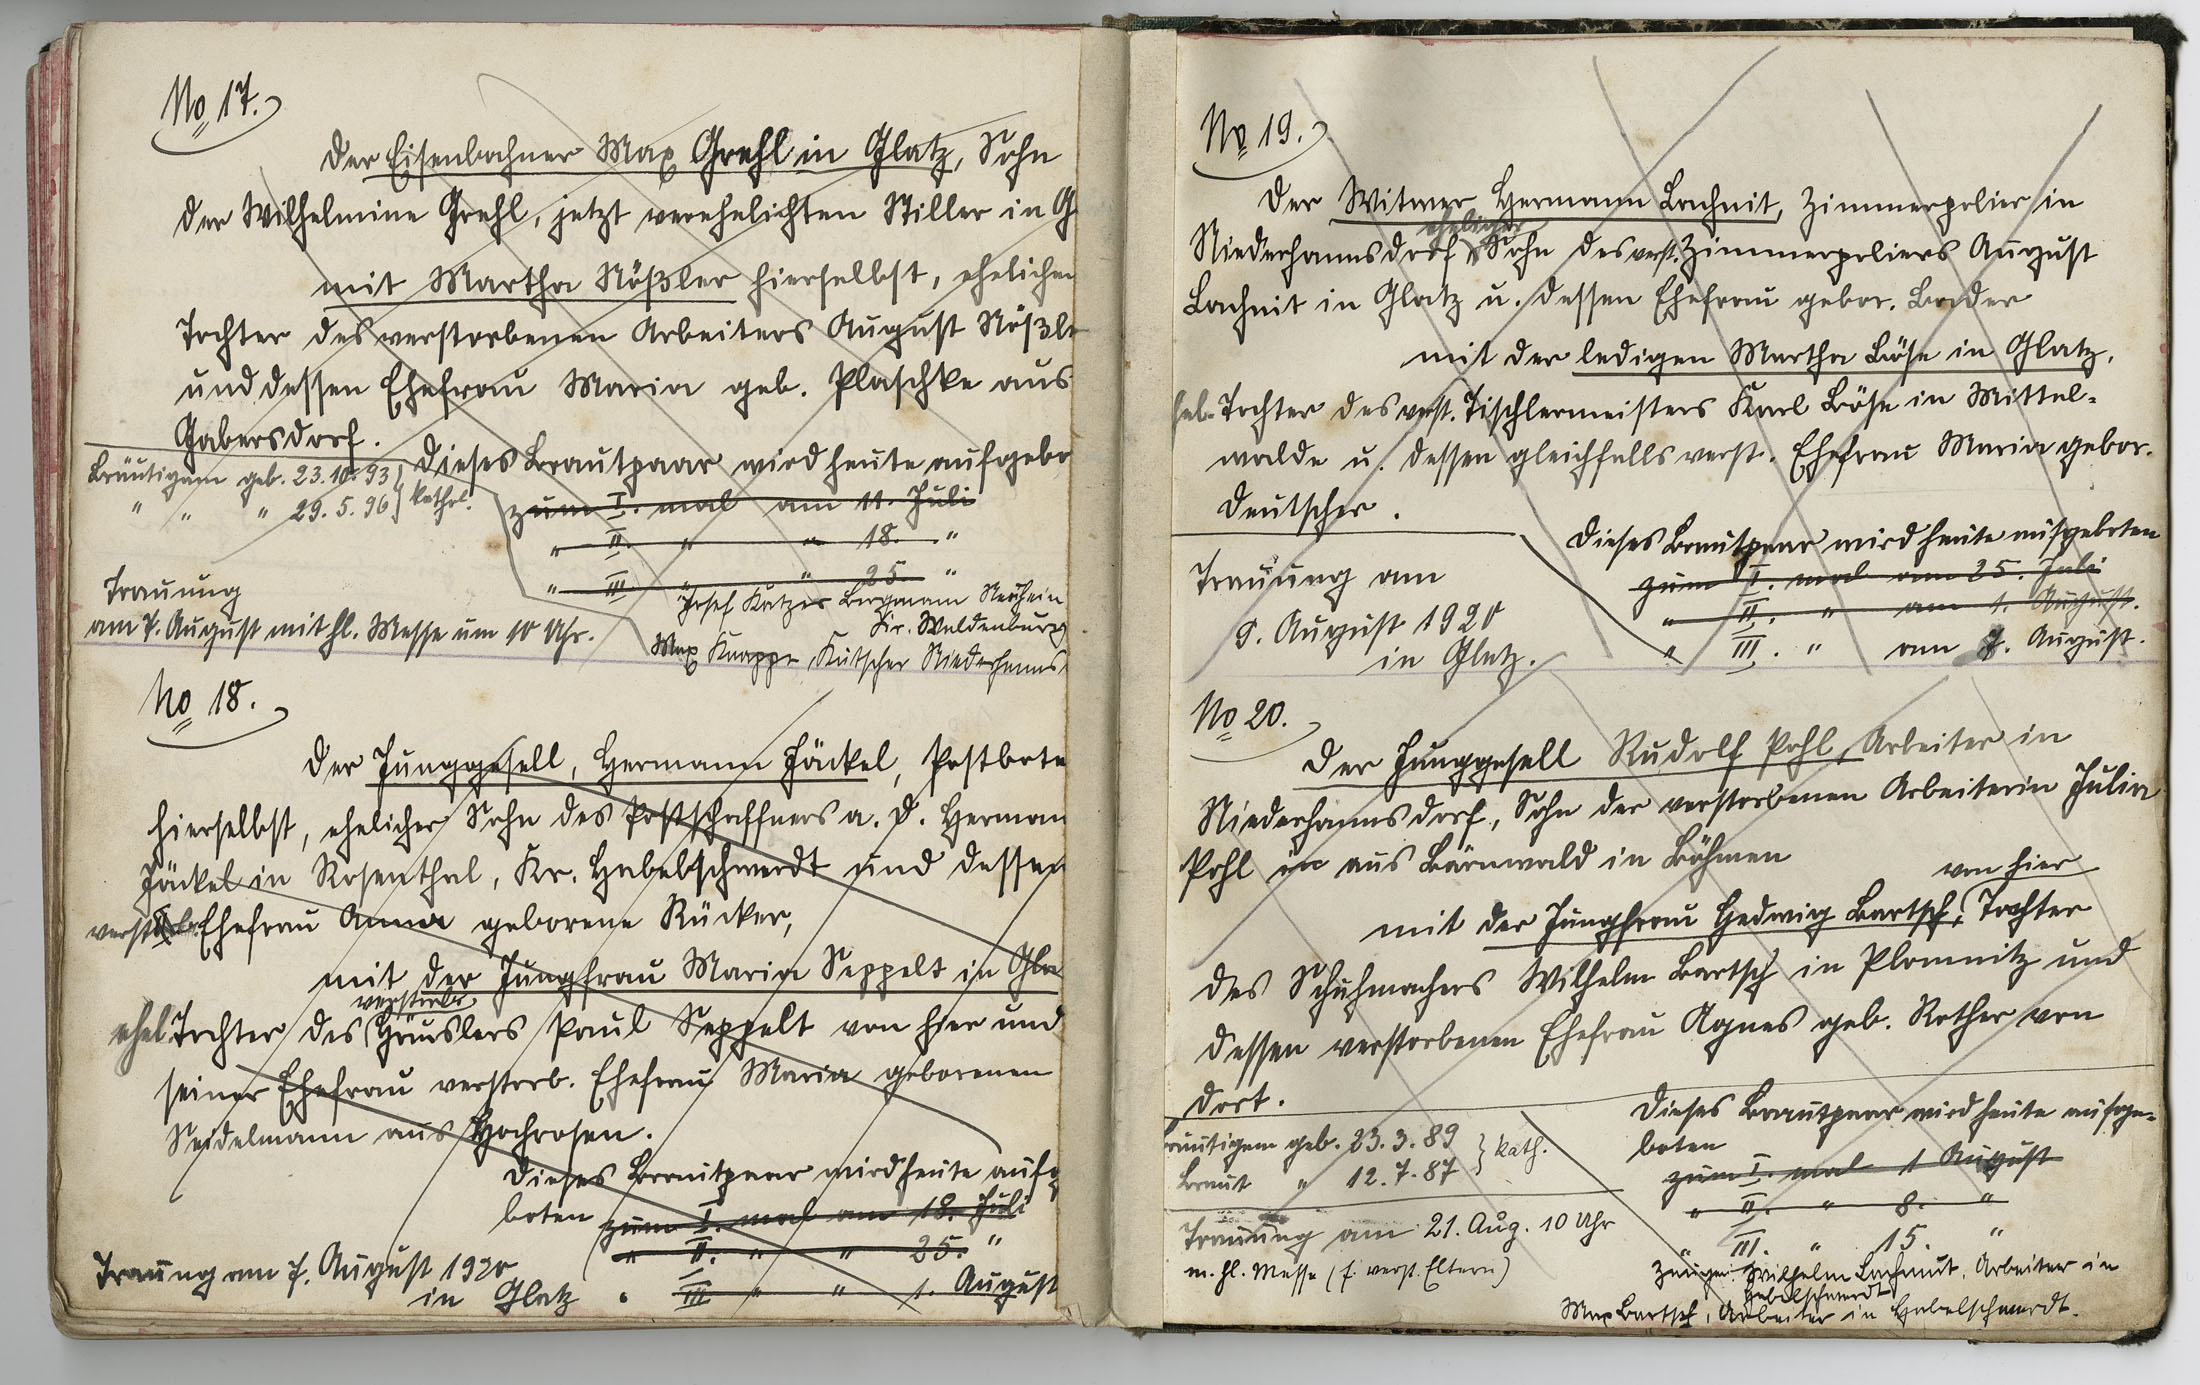 No 17.
Der Eisenbahner Max Grehl in Glatz, Sohn
der Wilhelmine Grehl, jetzt verehelichten Stiller in G
mit Martha Nößler hierselbst, ehelichen
Tochter des verstorbenen Arbeiters August Nößle
und dessen Ehefrau Maria geb. Plaschke aus
Gabersdorf.
Dieses Brautpaar wird heute aufgebo
Bräutigam geb. 23.10.93 } kathol.
" " " 29.5.96
zum I. mal am 11. Juli
" II. " " 18. "
" III. " " 25. "
Trauung
am 7. August mit hl. Messe um 10 Uhr.
Josef Katzer Bergmann Neuhein
Kr. Waldenburg
Max Knappe, Kutscher Niederhanns
No 18.
Der Junggesell, Hermann Jäckel, Postbote
hierselbst, ehelicher Sohn des Postschaffners a. D. Herman
Jäckel in Rosenthal, Kr. Habelschwerdt und dessen
verst Ehefrau Anna geborene Rücker,
mit der Jungfrau Maria Seppelt in Gla
verstorb.
ehel. Tochter des Häuslers Paul Seppelt von hier und
seiner Ehefrau verstorb. Ehefrau Maria geborenen
Seidelmann aus Hochrosen.
Dieses Brautpaar wird heute aufg
boten zum I. mal am 18. Juli
" II. " " 25. "
" III " " 1. August
Trauung am 7. August 1920
in Glatz
No 19.
Der Witwer Hermann Lachnit, Zimmerpolier in
ehelicher
Niederhannsdorf, Sohn des verst. Zimmerpoliers August
Lachnit in Glatz u. dessen Ehefrau gebor. Bader
mit der ledigen Martha Böse in Glatz,
hel. Tochter des verst. Tischlermeisters Karl Böse in Mittel-
walde u. dessen gleichfalls verst. Ehefrau Maria gebor.
Deutscher.
Dieses Brautpaar wird heute aufgeboten
zum I. mal am 25. Juli
" II. " am 1. August.
" III. " am 7. August.
Trauung am
9. August 1920
in Glatz.
No 20.
Der Junggesell Rudolf Pohl, Arbeiter in
Niederhannsdorf, Sohn der verstorbenen Arbeiterin Julia
Pohl in aus Bärnwald in Böhmen
von hier
mit der Jungfrau Hedwig Bartsch, Tochter
des Schuhmachers Wilhelm Bartsch in Plomnitz und
dessen verstorbenen Ehefrau Agnes geb. Rother von
dort.
Dieses Brautpaar wird heute aufge-
boten
zum I. mal 1 August
" II. " 8. "
" III. " 15. "
räutigam geb. 23.3.89 } kath.
Braut " 12.7.87
Trauung am 21. Aug. 10 Uhr
m. hl. Messe (f. verst. Eltern)
Zeugen: Wilhelm Lachnut, Arbeiter in
Habelschwerdt
Max Bartsch, Arbeiter in Habelschwerdt.